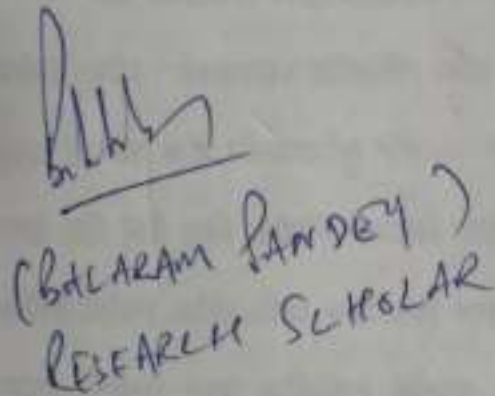 (BALARAM PANDEY)
RESEARCH SCHOLAR